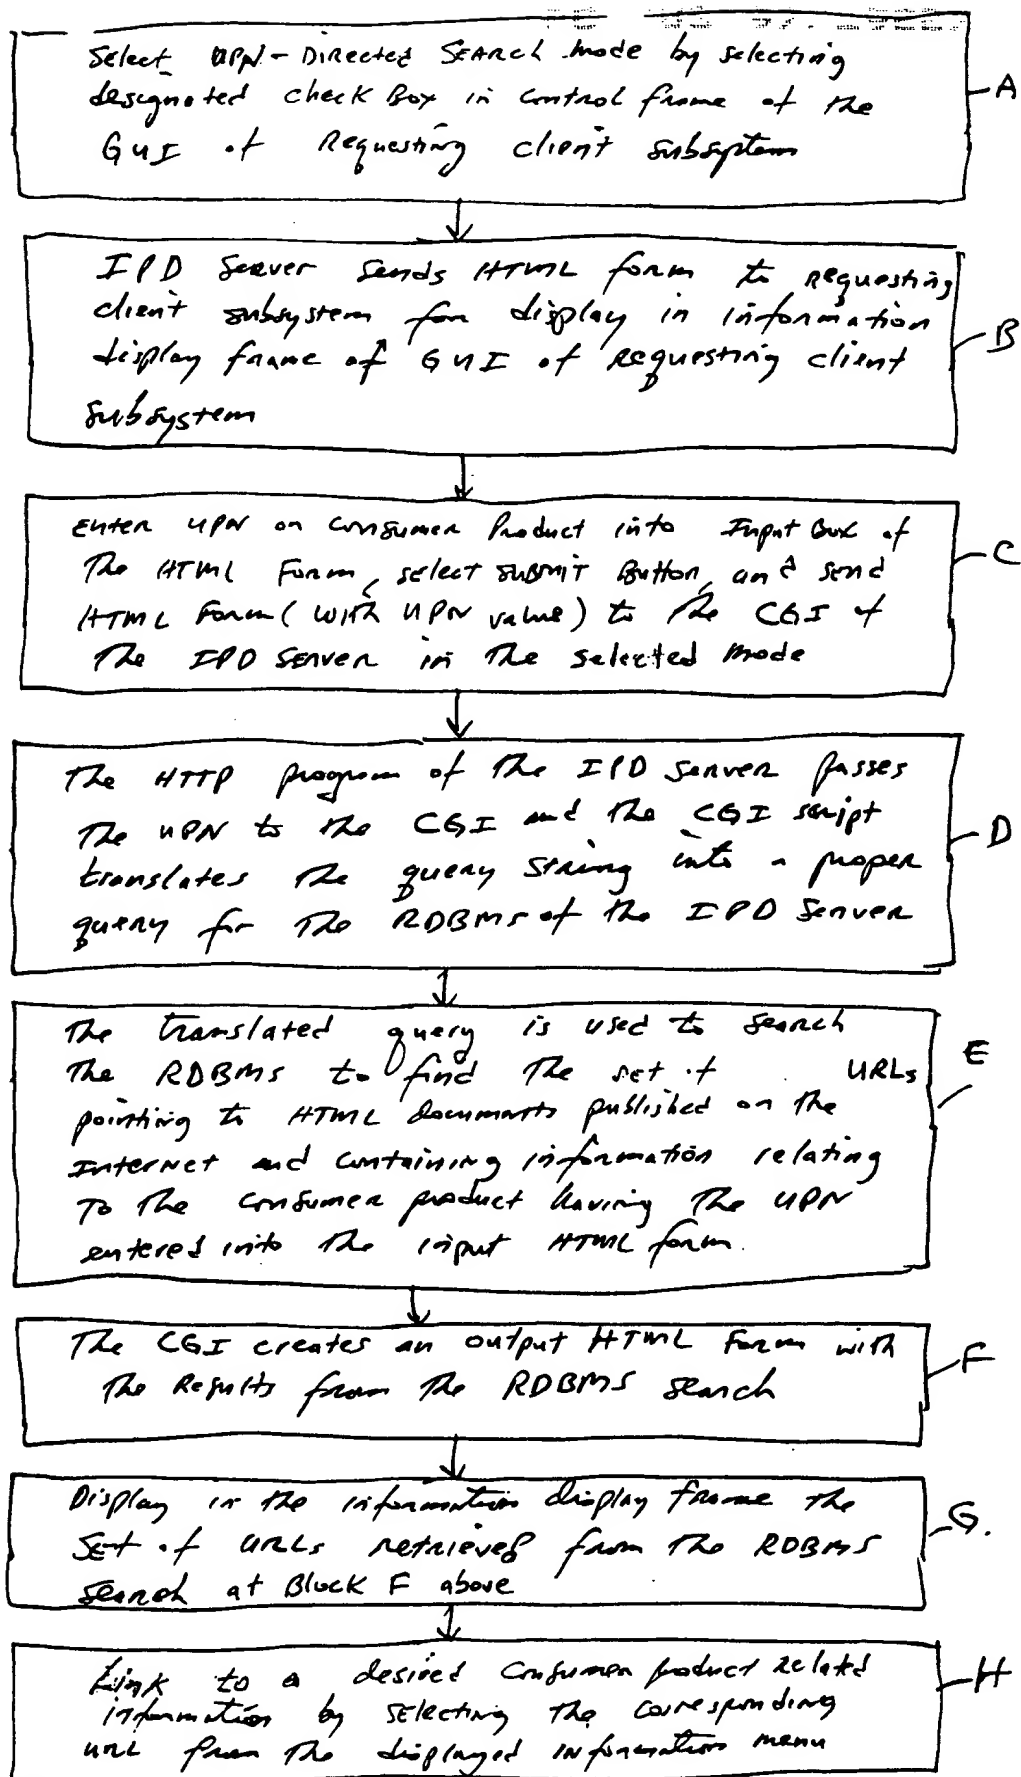 Select UPN-Directed Search mode by selecting
designated check Box in control frame of the
GUI of Requesting client subsystem
A
IPD Server sends HTML form to requesting
client subsystem for display in information
display frame of GUI of requesting client
subsystem
B
Enter UPN on Consumer Product into Input Box of
The HTML Form, select submit Button, and send
HTML Form (with UPN value) to The CGI of
The IPD Server in The selected mode
C
The HTTP program of the IPD Server passes
The UPN to the CGI and the CGI script
translates the query string into a proper
query for The RDBMS of the IPD Server
D
The translated query is used to search
The RDBMS to find The set of URLs
pointing to HTML documents published on the
Internet and containing information relating
To the consumer product having The UPN
entered into the input HTML form.
E
The CGI creates an output HTML Form with
The Results from The RDBMS search
F
Display in the information display frame the
Set of URLs retrieved from The RDBMS
Search at Block F above
G.
Link to a desired Consumer product related
information by selecting the corresponding
URL from the displayed information menu
H